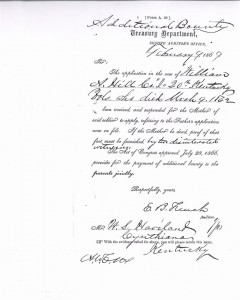 [Form A. 20.]
Additional Bounty
Treasury Department,
SECOND AUDITOR'S OFFICE,
1869
SIR:
The application in the case of William
Hill Co. 20th Kentucky
Vols who died March 9, 1862
has been received, and suspended for the Mother of said
soldier to apply, referring to the Father's application
now on file. If the Mother be dead, proof of that
fact must be furnished, by two disinterested
witnesses.
The Act of Congress approved July 28, 1866,
provides for the payment of additional bounty to the
parents jointly.
Respectfully, yours,
E. B. French
Auditor.
W. S. Haviland
Cynthiana
With the evidence called for above, you will please return this letter.
Kentucky